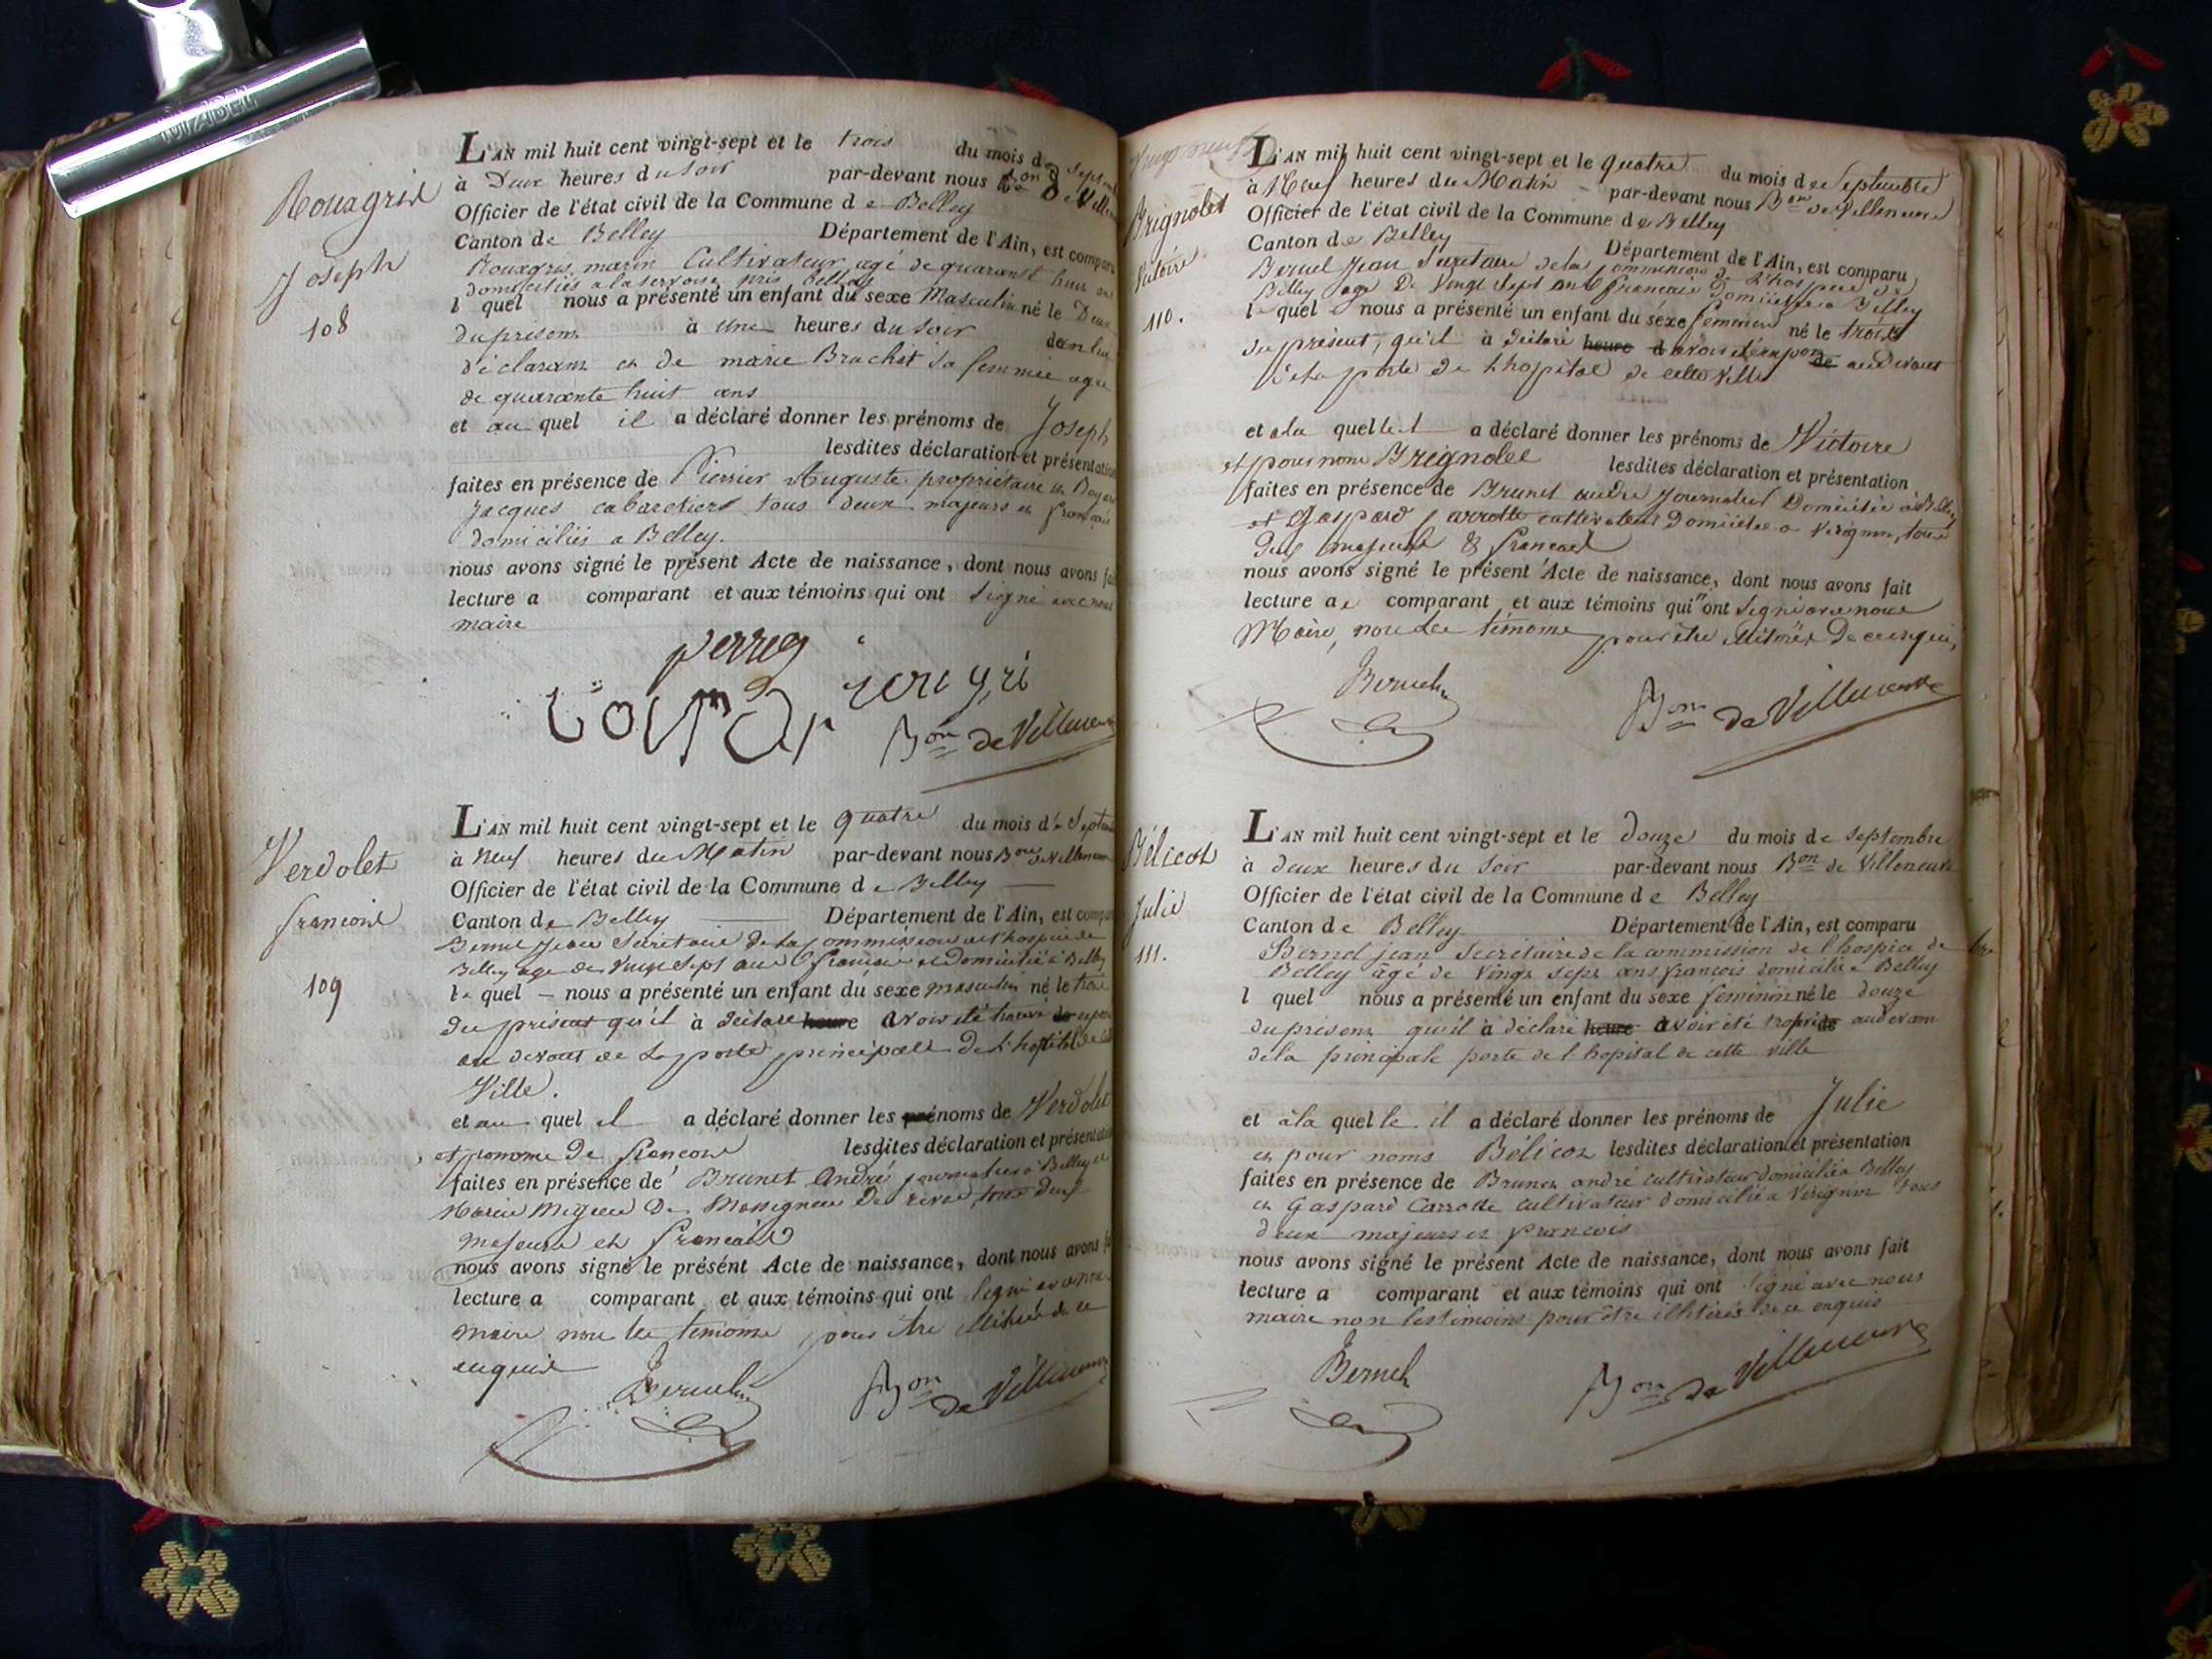 Rouxgrix
Joseph
108
L'AN mil huit cent vingt-sept et le trois du mois de Septem
à Deux heures du Soir par-devant nous Bon de Ville
Officier de l'état civil de la Commune de Belley
Canton de Belley Département de l'Ain, est compar
Rouxgris marin Cultivateur agé de quarante huit an
domiciliés a la servoise près Belley
l quel nous a présenté un enfant du sexe Masculin né le Deux
du présent à Une heures du Soir de lui
déclarant et de marie Brachet sa femme agée
de quarante huit ans
et au quel il a déclaré donner les prénoms de Joseph
lesdites déclaration et présentation
faites en présence de Pierrier Auguste propriétaire et
Jacques cabaretier tous deux majeurs et français
domiciliés a Belley.
nous avons signé le présent Acte de naissance, dont nous avons fai
lecture a comparant et aux témoins qui ont Signé avec nous
maire
Bon de Villeneuve
Verdolet
françois
109
L'AN mil huit cent vingt-sept et le quatre du mois de Septem
à Neuf heures du Matin par-devant nous Bon de Villeneuve
Officier de l'état civil de la Commune de Belley
Canton de Belley Département de l'Ain, est compar
Bernel Jean Secrétaire de la Commission de l'hospice de
Belley agé de Vingt Sept ans français et domicilié à Belley
le quel nous a présenté un enfant du sexe masculin né le trois
du présent qu'il à déclaré heure avoir été trouvé de exposé
au devant de la porte principale de l'hopital de
Ville.
et au quel il a déclaré donner les prénoms de Verdolet
et prenoms de françois lesdites déclaration et présentation
faites en présence de Brunet André journalier à Belley et
de Massigneu de rives, tous deux
majeurs et français
nous avons signé le présent Acte de naissance, dont nous avons f
lecture a comparant et aux témoins qui ont Signé avec nous
maire non les temoins pour être illitérés de ce
enquis
Bernel
Bon de Villeneuve
Brignolet
Victoire
110.
L'AN mil huit cent vingt-sept et le quatre du mois de Septembre
à Neuf heures du Matin par-devant nous Bon de Villeneuve
Officier de l'état civil de la Commune de Belley
Canton de Belley Département de l'Ain, est comparu
Bernel Jean Secretaire de la Commission de l'hospice de
Belley age de Vingt Sept ans francais Domicilié a Belley
le quel nous a présenté un enfant du sexe feminin né le trois
du présent, qu'il à déclaré heure d avoir été exposé de au devant
de la porte de l hopital de cette Ville
et a la quelle il a déclaré donner les prénoms de Victoire
et pour nom Brignolet lesdites déclaration et présentation
faites en présence de Brunet andre Journalier Domicilié à Belley
et Gaspard Carrotte cultivateur Domicilié a Virignin, tous
deux majeurs & francais
nous avons signé le présent Acte de naissance, dont nous avons fait
lecture au comparant et aux témoins qui ont Signé avec nous
Maire, non les témoins pour être illitérés de ce enquis,
Bernel
Bon de Villeneuve
Bélicot
Julie
111.
L'AN mil huit cent vingt-sept et le douze du mois de Septembre
à deux heures du Soir par-devant nous Bon de Villeneuve
Officier de l'état civil de la Commune de Belley
Canton de Belley Département de l'Ain, est comparu
Bernel jean Secrétaire de la commission de l'hospice de
Belley âgé de vingt sept ans françois domicilié a Belley
l quel nous a présenté un enfant du sexe feminin né le douze
du présent qu'il à déclaré heure avoir été trouvé de au devant
de la principale porte de l hopital de cette ville
et à la quelle il a déclaré donner les prénoms de Julie
et pour noms Bélicot lesdites déclaration et présentation
faites en présence de Brunet andré cultivateur domicilié a Belley
et Gaspard Carrotte cultivateur domicilié a Virignin tous
deux majeurs et francois
nous avons signé le présent Acte de naissance, dont nous avons fait
lecture a comparant et aux témoins qui ont Signé avec nous
maire non les témoins pour être illitérés de ce enquis
Bernel
Bon de Villeneuve